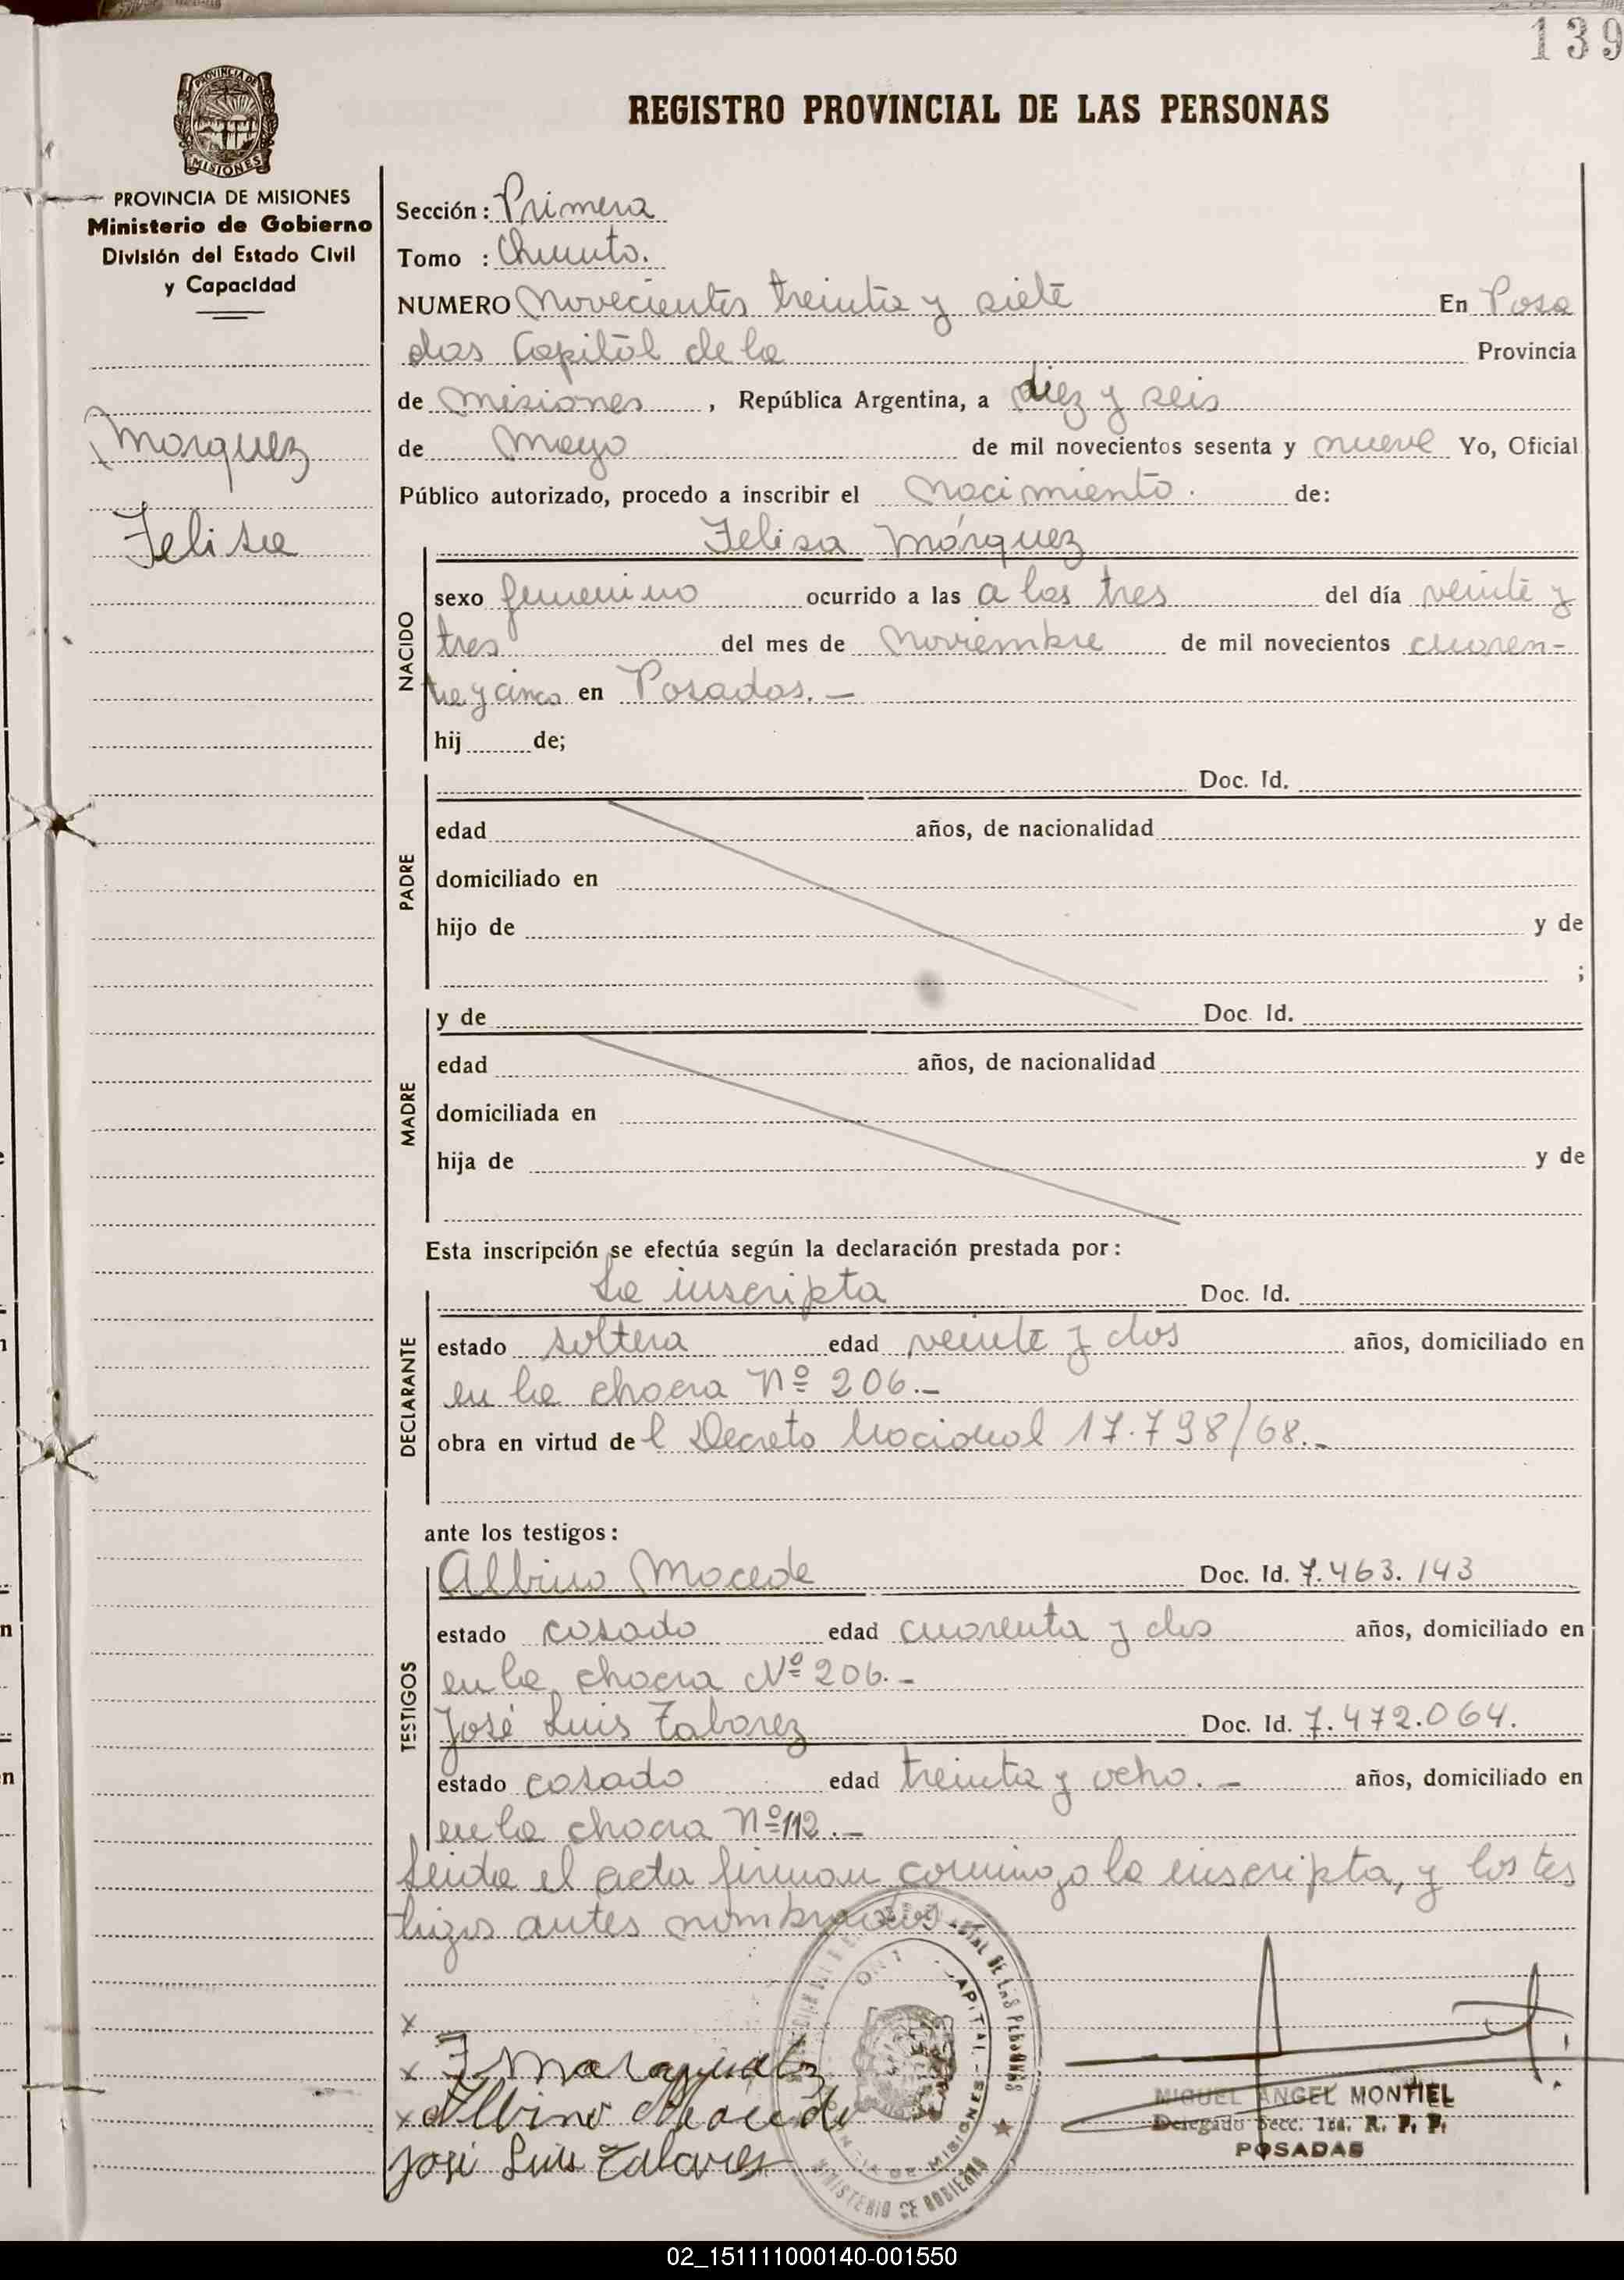 139
REGISTRO PROVINCIAL DE LAS PERSONAS
PROVINCIA DE MISIONES
PROVINCIA DE MISIONES
Ministerio de Gobierno
División del Estado Civil
y Capacidad
Marquez
Felisa
Sección: Primera
Tomo :
NUMERO Novecientos treinta y siete En Posa
das Capital de la Provincia
de Misiones , República Argentina, a diez y seis
de Mayo de mil novecientos sesenta y nueve Yo, Oficial
Público autorizado, procedo a inscribir el Nacimiento. de:
Felisa Márquez
NACIDO
sexo femenino ocurrido a las a las tres del día veinte y
tres del mes de Noviembre de mil novecientos cuaren-
ta y cinco en Posadas. —
hij de;
PADRE
Doc. Id.
edad años, de nacionalidad
domiciliado en
hijo de y de
;
MADRE
y de Doc. Id.
edad años, de nacionalidad
domiciliada en
hija de y de
Esta inscripción se efectúa según la declaración prestada por:
DECLARANTE
La inscripta Doc. Id.
estado soltera edad veinte y dos años, domiciliado en
en la chacra Nº 206.—
obra en virtud de l Decreto Nacional 17.798/68.-
ante los testigos:
TESTIGOS
Albino Macede Doc. Id. 7.463.143
estado casado edad cuarenta y dos años, domiciliado en
en la chacra Nº 206.-
José Luis Tabarez Doc. Id. 7.472.064.
estado casado edad treinta y ocho. — años, domiciliado en
en la chacra Nº 112.—
Leida el acta firman conmigo la inscripta, y los tes
tigos antes nombrados.
x
x F Marquez
x Albino Macede
José Luis Tabares
CAPITAL - MISIONES
PROVINCIA DE MISIONES
MINISTERIO DE GOBIERNO
MIGUEL ANGEL MONTIEL
Delegado Secc. 1ra. R. P. P.
POSADAS
02_151111000140-001550